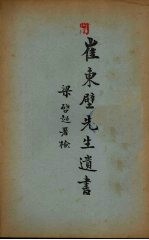 崔東壁先生遺書
梁啓超署檢